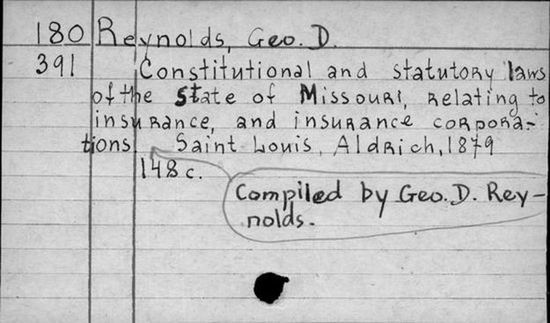 180 Reynolds, Geo. D.
391 Constitutional and statutory laws
of the State of Missouri, relating to
insurance, and insurance corpora-
tions. Saint Louis, Aldrich, 1879
148 c.
Compiled by Geo. D. Rey-
nolds.